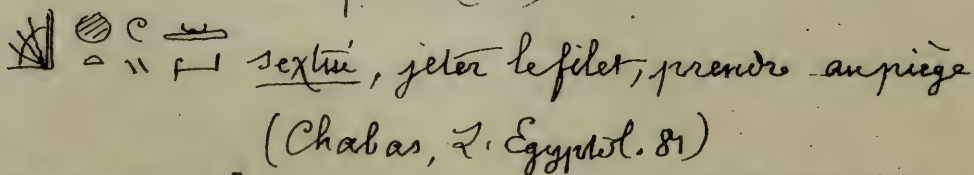 sextui, jeter le filet, prendre au piège
(Chabas, Z. Egyptol. 81)